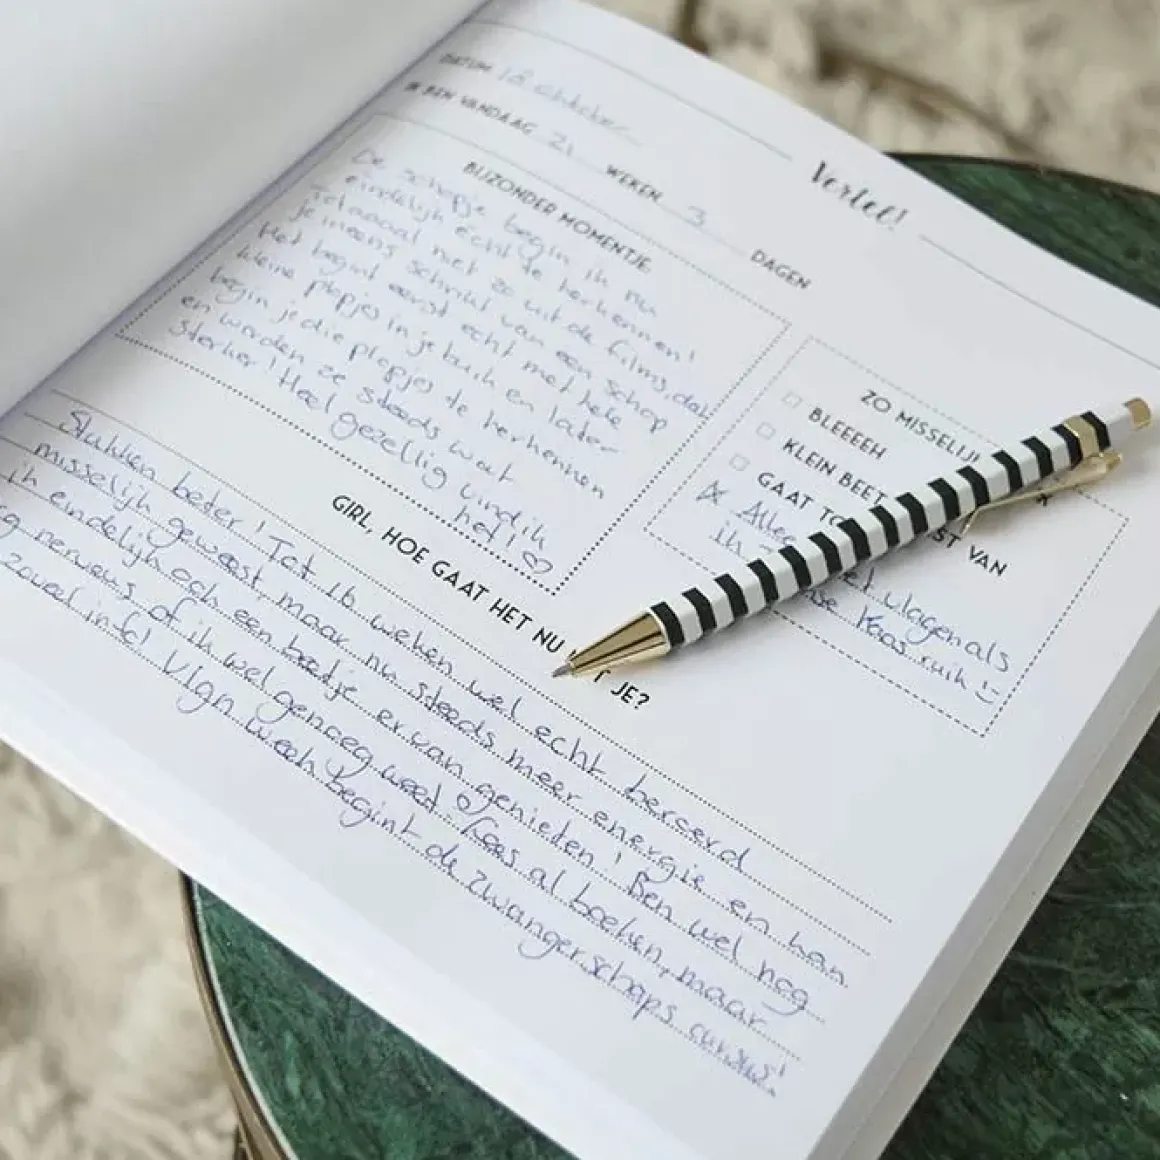 Vertel!
DATUM 18 oktober
IK BEN VANDAAG 21 WEKEN 3 DAGEN
BIJZONDER MOMENTJE
De schopjes begin ik nu
eindelijk echt te herkennen!
Totaaaal niet zo uit de films, dat
je ineens schrikt van een schop
Het begint eerst echt met hele
kleine plopjes in je buik en later
begin je die plopjes te herkennen
en worden ze steeds wat
sterker! Heel gezellig vind ik
het! ♡
ZO MISSELIJK
BLEEEEH
KLEIN BEET
GAAT
ST VAN
Alle
ik
vlagen als
kaas ruik :-)
GIRL, HOE GAAT HET NU JE?
Stukken beter! Tot 16 weken wel echt beroerd
misselijk geweest maar nu steeds meer energie en kan
ik eindelijk ook een beetje er van genieten! Ben wel nog
nerveus of ik wel genoeg weet. Lees al boeken, maar
zoveel info! Vlgn week begint de zwangerschaps cursus!